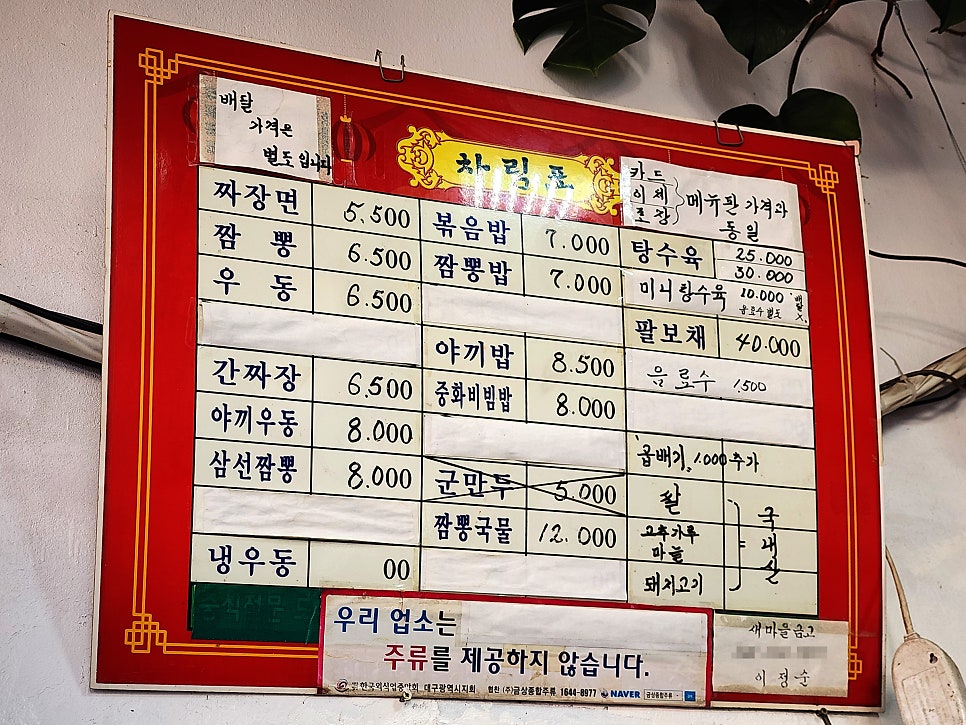 배달
가격은
별도입니다
차림표
카드
이체
포장
메뉴판 가격과
동일
짜장면 5.500
짬뽕 6.500
우동 6.500
간짜장 6.500
야끼우동 8.000
삼선짬뽕 8.000
냉우동 00
볶음밥 7.000
짬뽕밥 7.000
야끼밥 8.500
중화비빔밥 8.000
군만두 5.000
짬뽕국물 12.000
탕수육 25.000
30.000
미니탕수육 10.000 배달
음료수별도 X.
팔보채 40.000
음료수 1.500
곱배기. 1.000 추가
쌀
고추가루
마늘
돼지고기
= 국내산
우리 업소는
주류를 제공하지 않습니다.
한국외식업중앙회 대구광역시지회 협찬 (주)금상종합주류 1644-8977 NAVER 금상종합주류
새마을금고
이정순